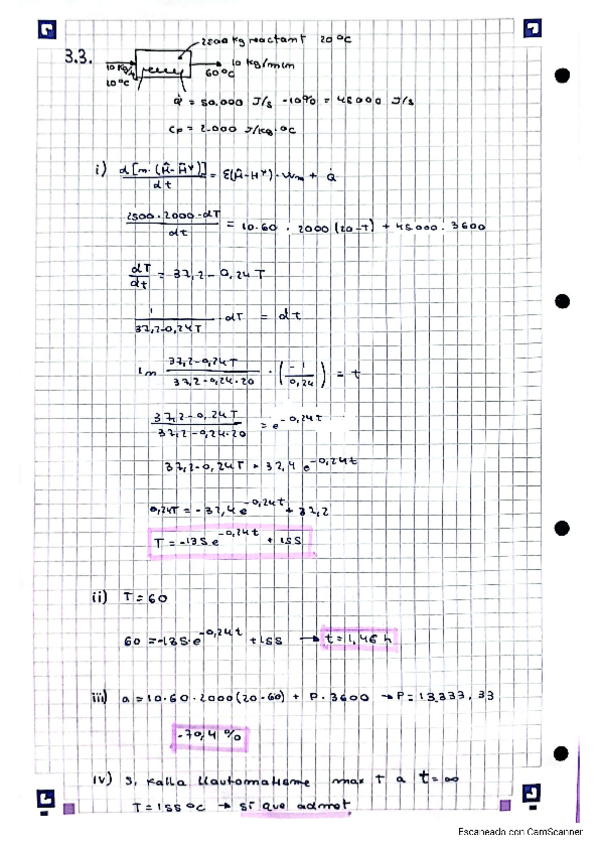 2200 kg reactant 20ºC
3.3.
10 kg/min
10 kg/s
60ºC
20ºC
Q̇ = 50.000 J/s - 10% = 45000 J/s
Cp = 2.000 J/kg·ºC
i) d[m·(Ĥ-Ĥ*)]/dt = Σ(Ĥ-H*)·wm + Q̇
2500·2000·dT/dt = 10.60 . 2000 (20-T) + 45.000. 3600
dT/dt = 37,2 - 0,24T
1/(37,2-0,24T) · dT = dt
ln (37,2-0,24T)/(37,2-0,24·20) · (-1/0,24) = t
(37,2-0,24T)/(37,2-0,24·20) = e^-0,24t
37,2-0,24T = 32,4 e^-0,24t
0,24T = -32,4e^-0,24t + 37,2
T = -135e^-0,24t + 155
ii) T = 60
60 = -135·e^-0,24t + 155 → t = 1,46 h
iii) 0 = 10·60·2000(20-60) + P·3600 → P = 13.333,33
-70,4 %
iv) Si falla l'automatisme max T a t=∞
T = 155ºC → sí que admet
Escaneado con CamScanner